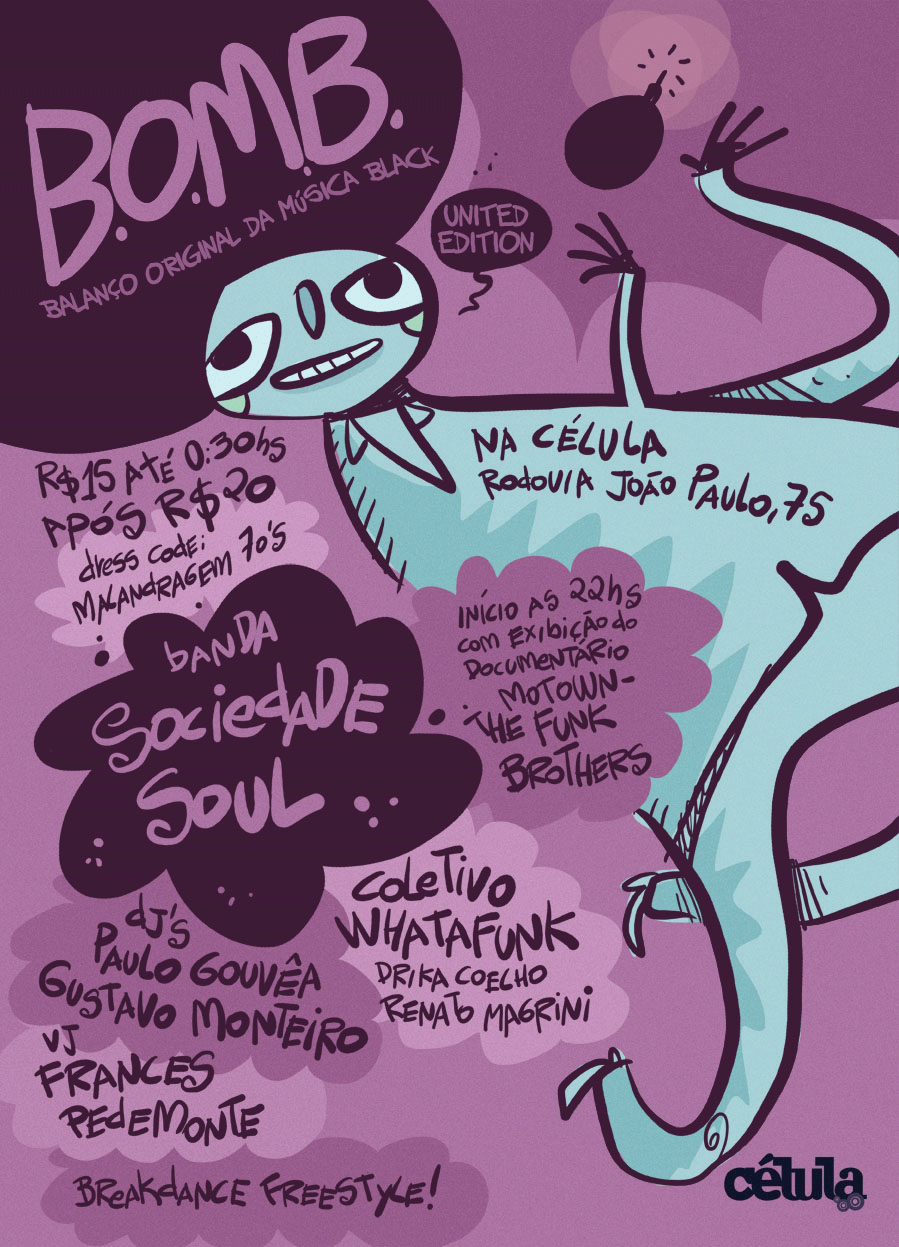 B.O.M.B.
BALANÇO ORIGINAL DA MÚSICA BLACK
UNITED
EDITION
NA CÉLULA
RODOVIA JOÃO PAULO, 75
R$15 ATÉ 0:30hs
APÓS R$20
dress code:
MALANDRAGEM 70'S
INÍCIO AS 22hs
com EXIBIÇÃO do
DOCUMENTÁRIO
MOTOWN-
THE FUNK
BROTHERS
bANDA
SociedADE
SOUL
coletivo
WHATAFUNK
DRIKA COELHO
RENATO MAGRINI
dJ'S
PAULO GOUVÊA
GUSTAVO MONTEIRO
VJ
FRANCES
PEdEMONTE
BReAKdANCE FREESTYLE!
célula